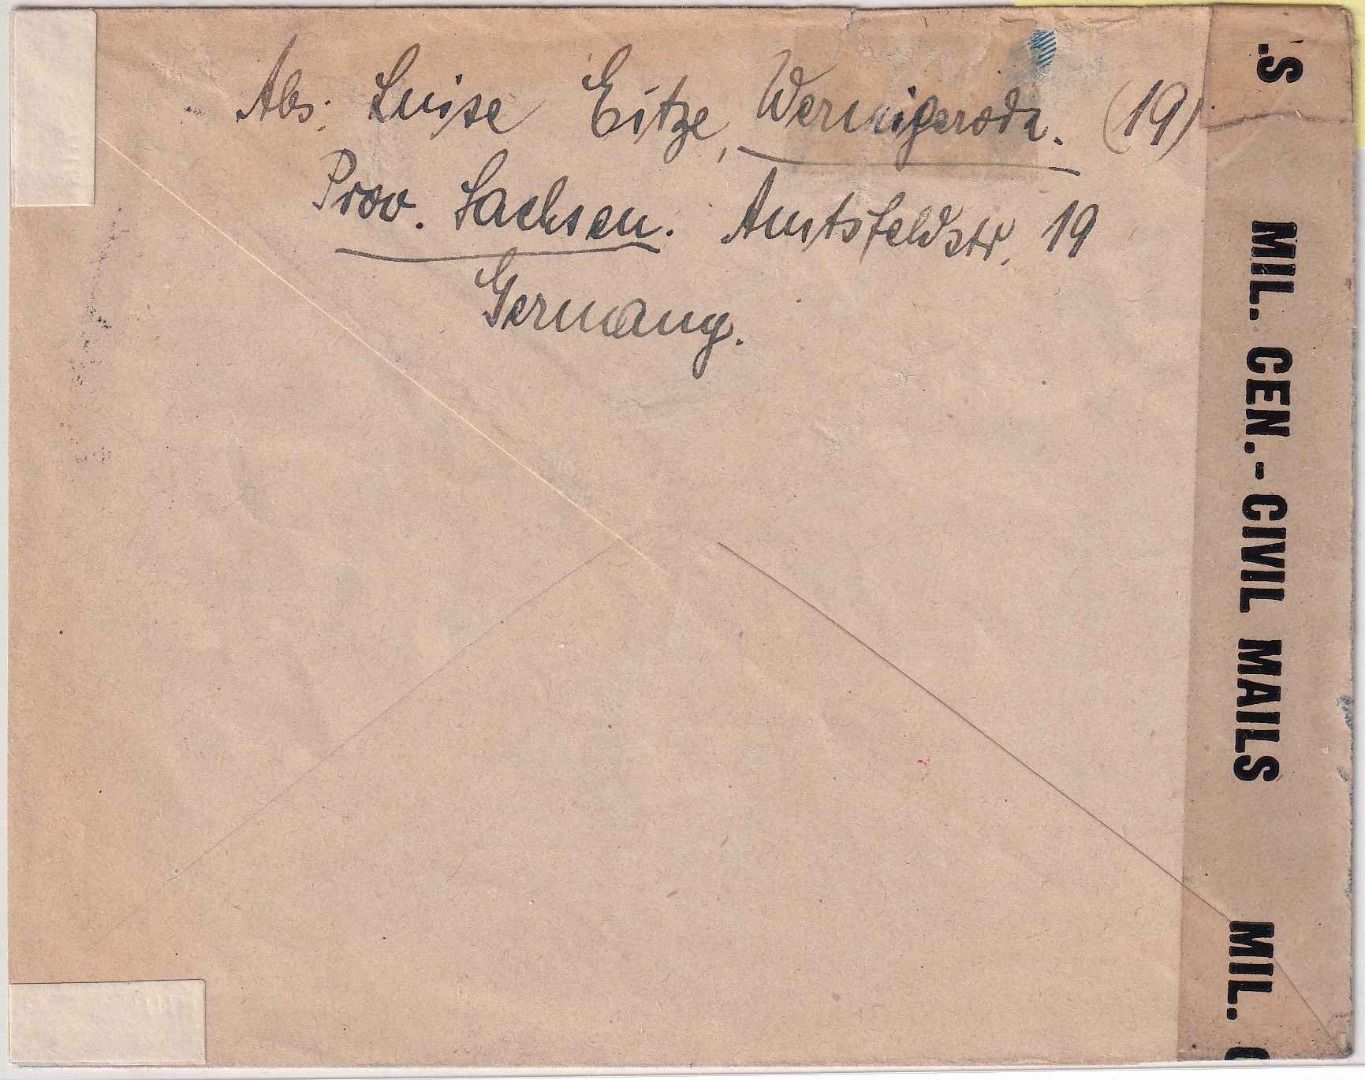 Abs. Luise Eitze, Wernigerode. (19)
Prov. Sachsen. Amtsfeldstr. 19
Germany.
.S MIL. CEN.-CIVIL MAILS MIL. C